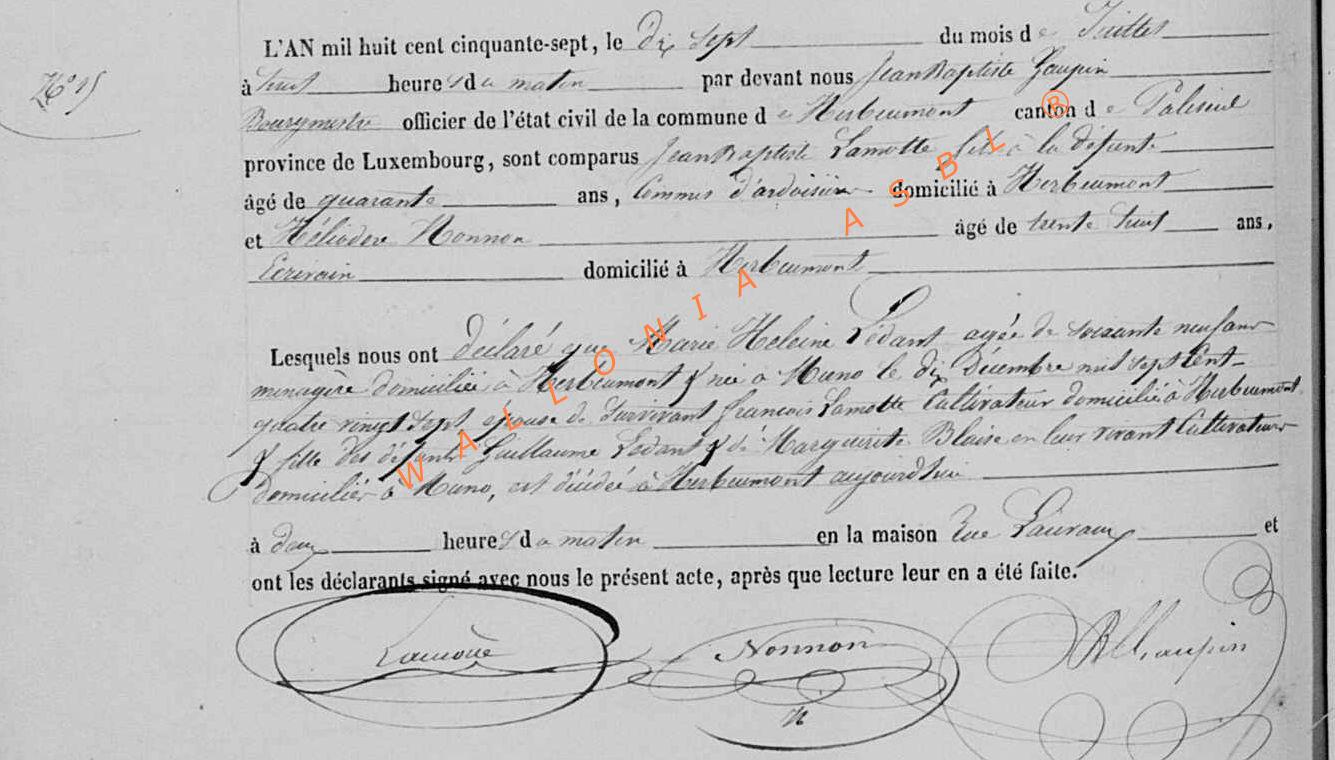 N° 15
L'AN mil huit cent cinquante-sept, le dix sept du mois de Juillet
à huit heures du matin par devant nous Jean Baptiste
Bourgmestre officier de l'état civil de la commune de Herbeumont canton de Paliseul
province de Luxembourg, sont comparus Jean Baptiste Lamotte fils à la défunte
âgé de quarante ans, Commis d'ardoisière domicilié à Herbeumont
et Héliodore Nonnon âgé de trente huit ans,
Ecrivain domicilié à Herbeumont
Lesquels nous ont déclaré que Marie Heleine Lédant agée de soixante neuf ans
menagère domiciliée à Herbeumont & née à Muno le dix Décembre mil sept cent
quatre vingt sept épouse de survivant francois Lamotte Cultivateur domicilié à Herbeumont
& fille des défunts Guillaume Lédant & de Marguirite Blaise en leur vivant Cultivateurs
domiciliés à Muno, est décédée à Herbeumont aujourd'hui
à deux heures du matin en la maison Rue et
ont les déclarants signé avec nous le présent acte, après que lecture leur en a été faite.
Lamotte Nonnon
WALLONIA ASBL ®